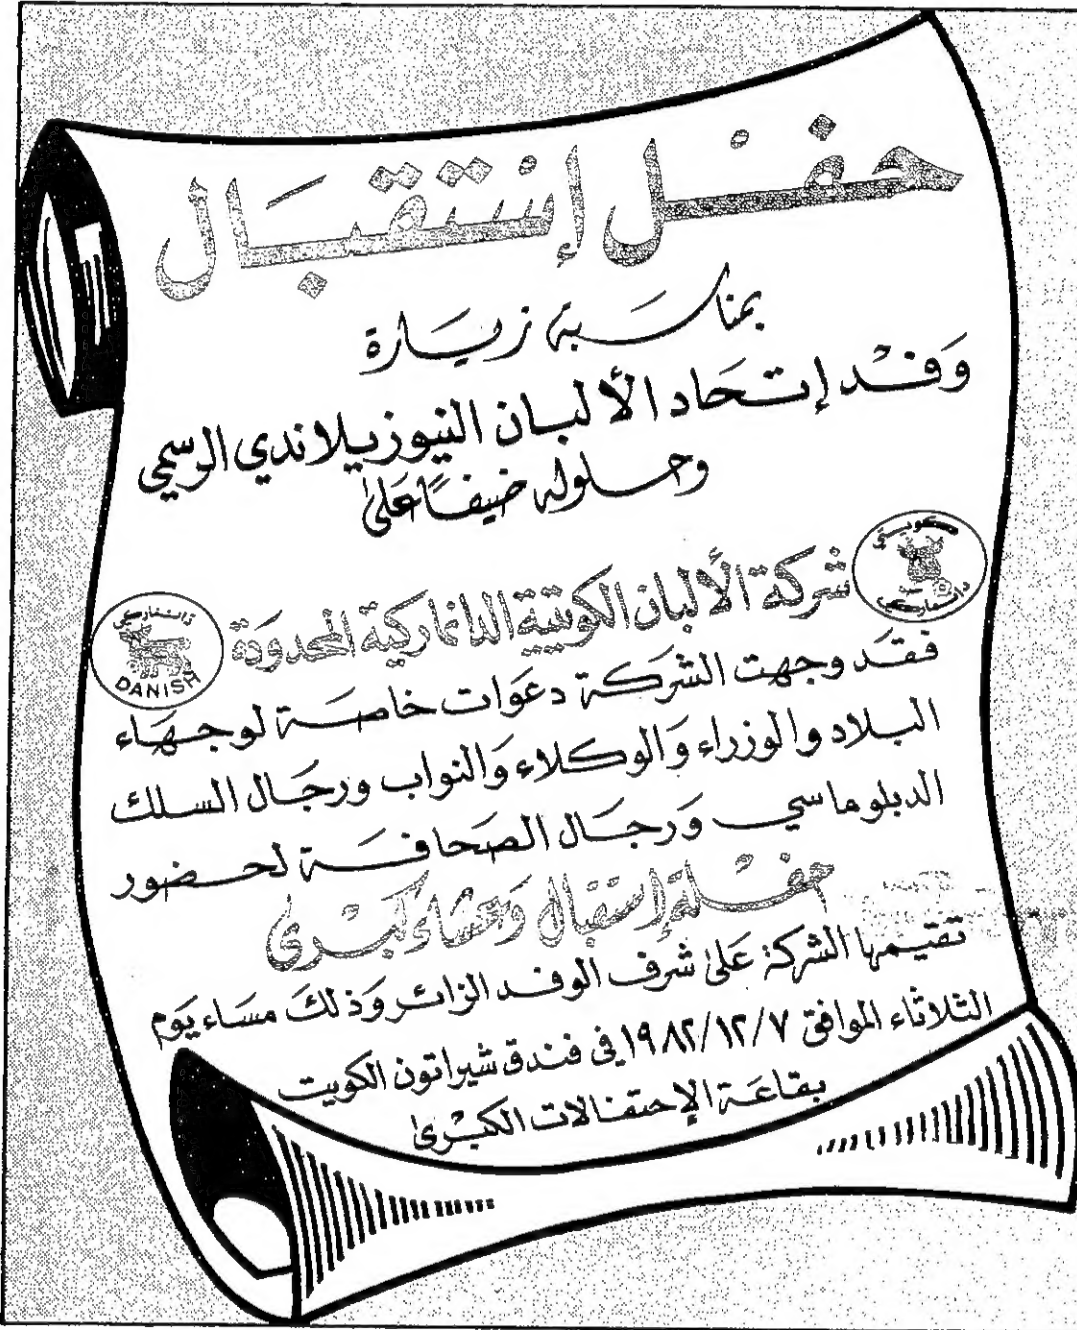 حفل إستقبال
بمناسبة زيارة
وَفْد إتحَاد الألبان النيوزيلاندي الرسمي
وحلوله ضيفًا عَلى
كويتي
دانماركي
شركة الألبان الكويتية الدانماركية المحدودة
دانماركي
DANISH
فقَد وجهت الشركة دعَوات خاصة لوجهَاء
البلاد والوزراء وَالوكلاء وَالنواب ورجَال السلك
الدبلوماسي وَرجَال الصَحافة لحضور
حفْلة إستقبال وَعشاء كبْرى
تقيمها الشركة عَلى شرف الوفد الزائر وَذلكَ مسَاء يَوم
الثلاثاء الموافق ١٩٨٢/١٢/٧ في فندق شيراتون الكويت
بقاعَة الإحتفالات الكبْرى